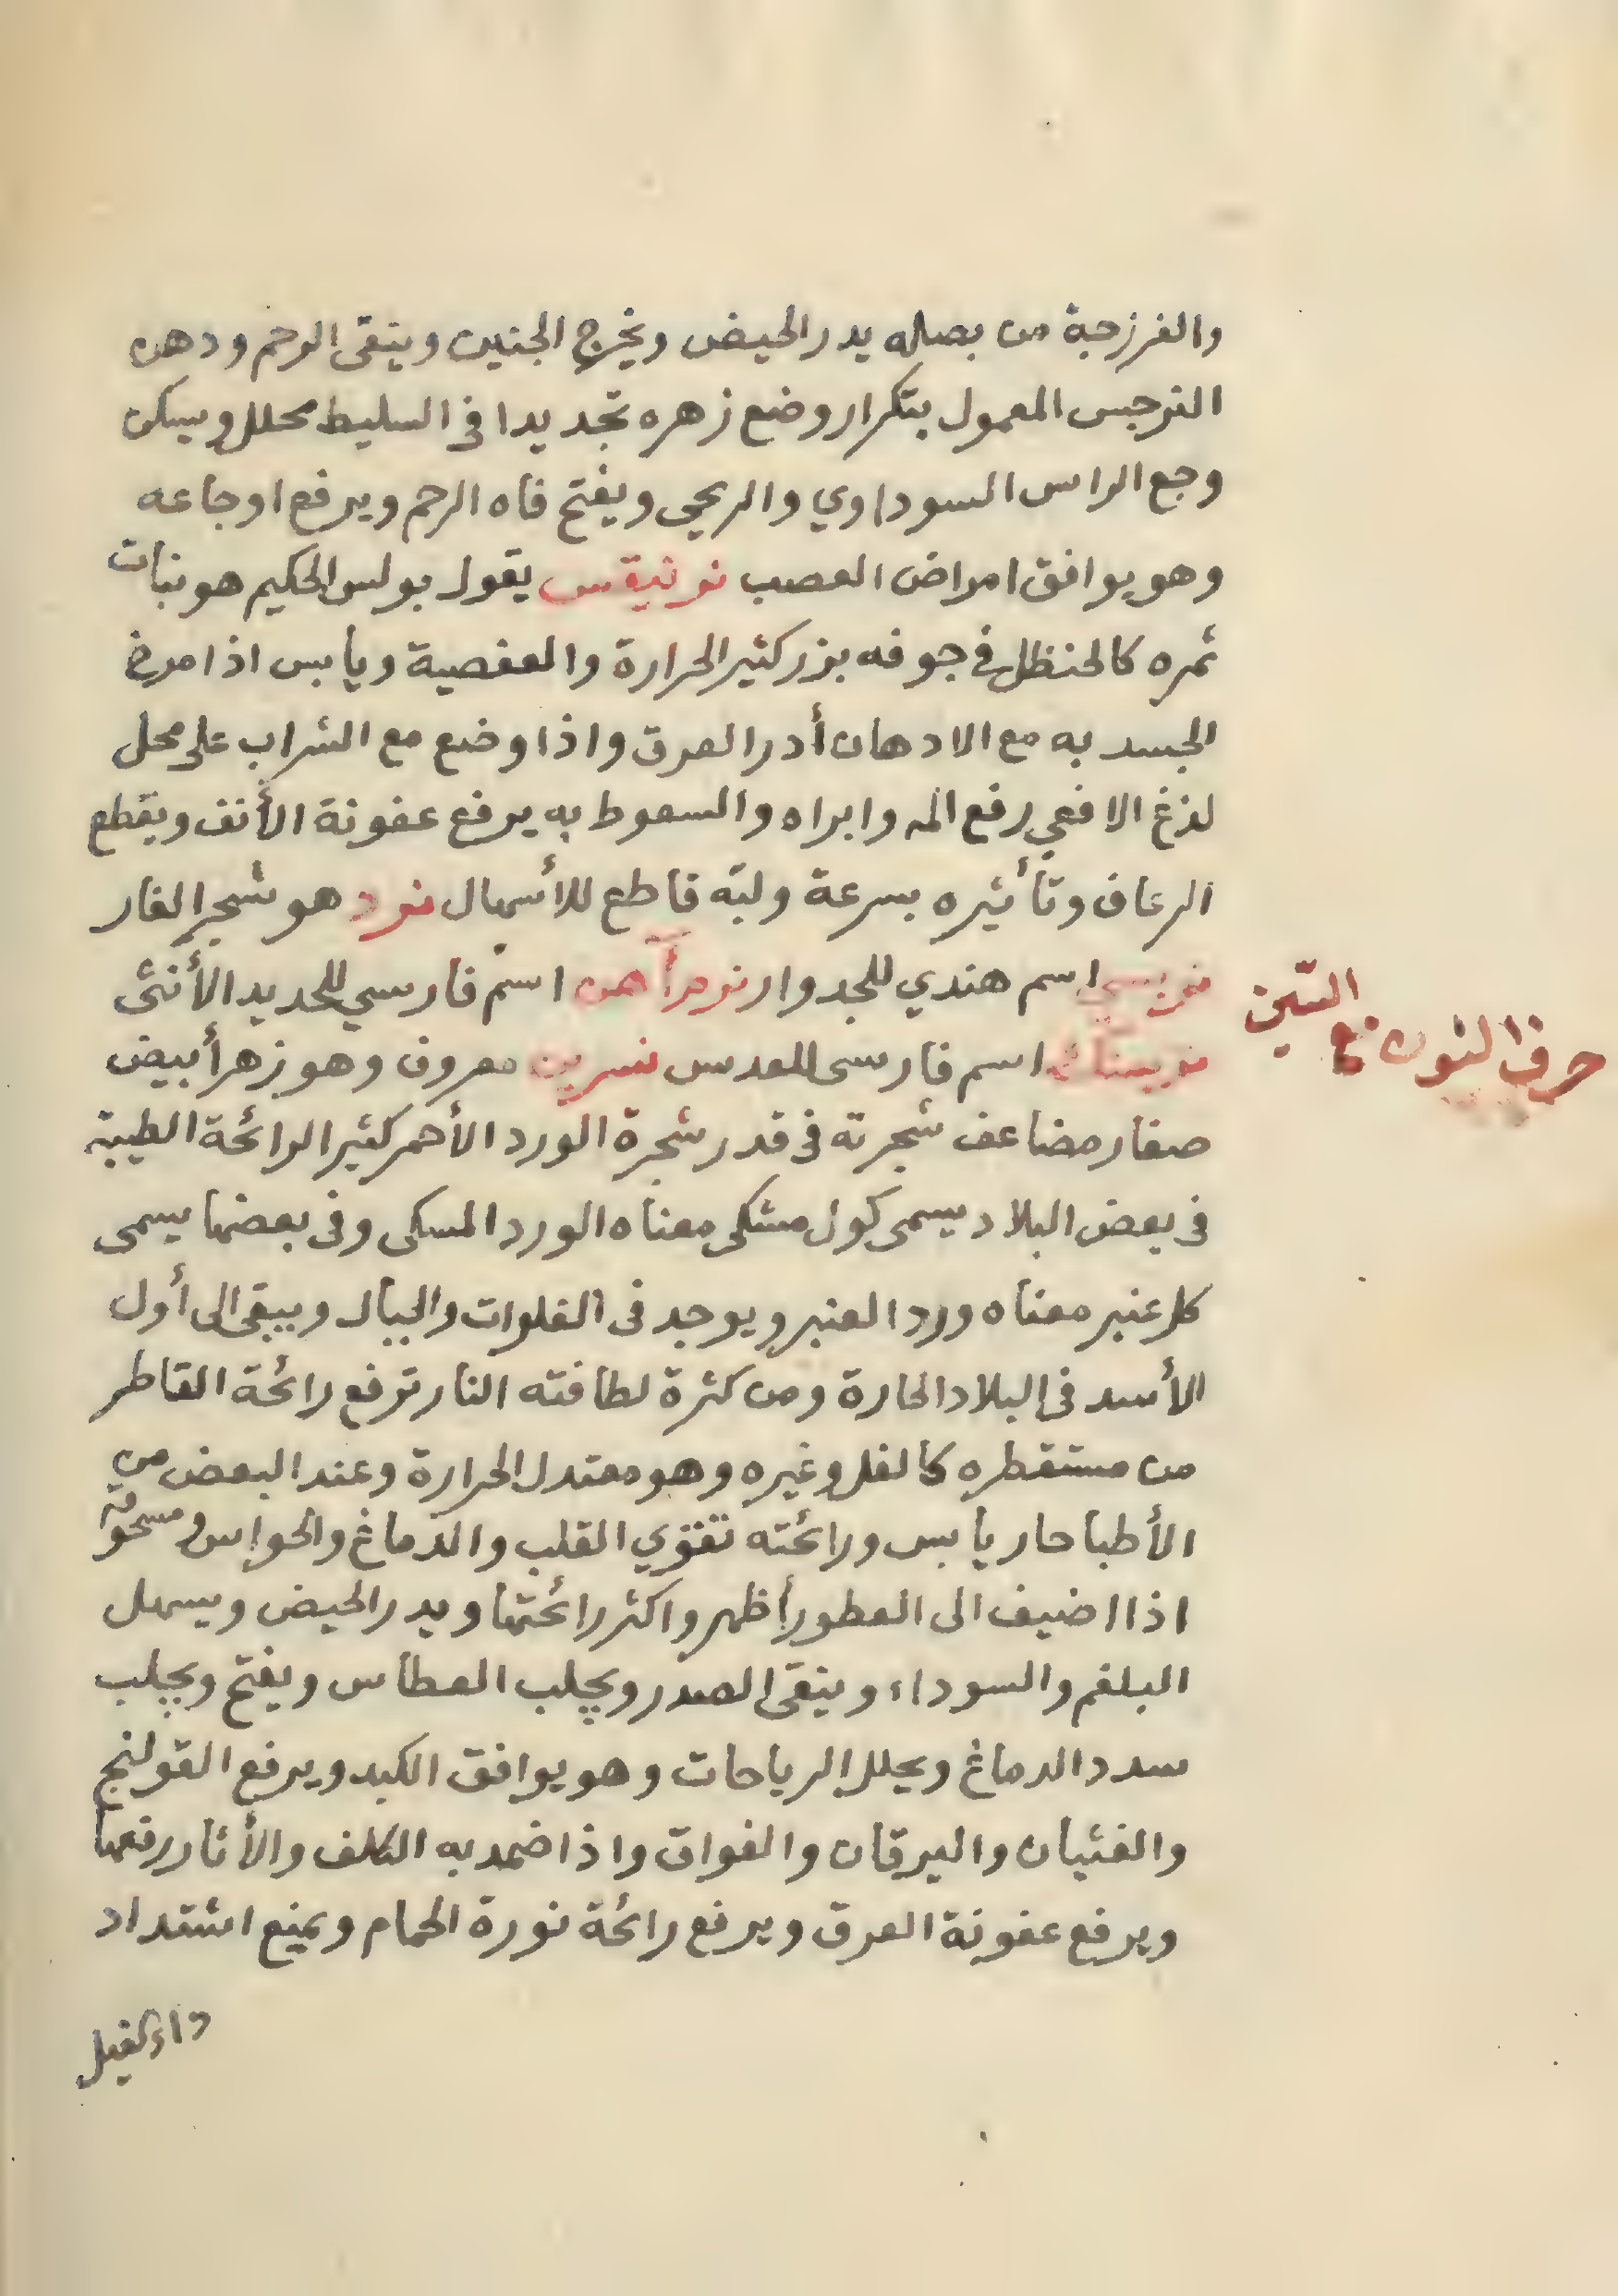 والفرزجة من بصله يدر الحيض ويخرج الجنين وينقى الرحم ودهن
النرجس المعمول بتكرار وضع زهره تجديدا فى السليط محلل ويسكن
وجع الراس السوداوي والريحى ويفتح فاه الرحم ويرفع اوجاعه
وهو يوافق امراض العصب نرنيقس يقول بولس الحكيم هو نبات
ثمره كالحنظل في جوفه بزر كثير الحرارة والعفصية ويابس اذا مرخ
الجسد به مع الادهان أدر العرق واذا وضع مع الشراب على محل
لذغ الافعي رفع المه وابراه والسعوط به يرفع عفونة الأنف ويقطع
الرعاف وتأثيره بسرعة ولبّه قاطع للأسهال نرد هو شجر الغار
اسم هندي للجدوار نرم آهن اسم فارسي للحديد الأنثى
اسم فارسى للعدس نسرين معروف وهو زهر أبيض
صغار مضاعف شجرته فى قدر شجرة الورد الأحمر كثير الرائحة الطيبة
فى بعض البلاد يسمى كول مشكى معناه الورد المسكى وفى بعضها يسمى
كل عنبر معناه ورد العنبر ويوجد فى الفلوات والجبال ويبقى الى أول
الأسد فى البلاد الحارة ومن كثرة لطافته النار ترفع رائحة القاطر
من مستقطره كالفل وغيره وهو معتدل الحرارة وعند البعض من
الأطبا حار يابس ورائحته تقوي القلب والدماغ والحواس ومسحوقه
اذا اضيف الى العطور أظهر واكثر رائحتها ويدر الحيض ويسهل
البلغم والسوداء وينقى الصدر ويجلب العطاس ويفتح ويجلب
سدد الدماغ ويحلل الرياحات وهو يوافق الكبد ويرفع القولنج
والغثيان واليرقان والفواق واذا ضمد به الكلف والأثار رفعها
ويرفع عفونة العرق ويرفع رائحة نورة الحمام ويمنع اشتداد
داء الفيل
حرف النون مع السّين